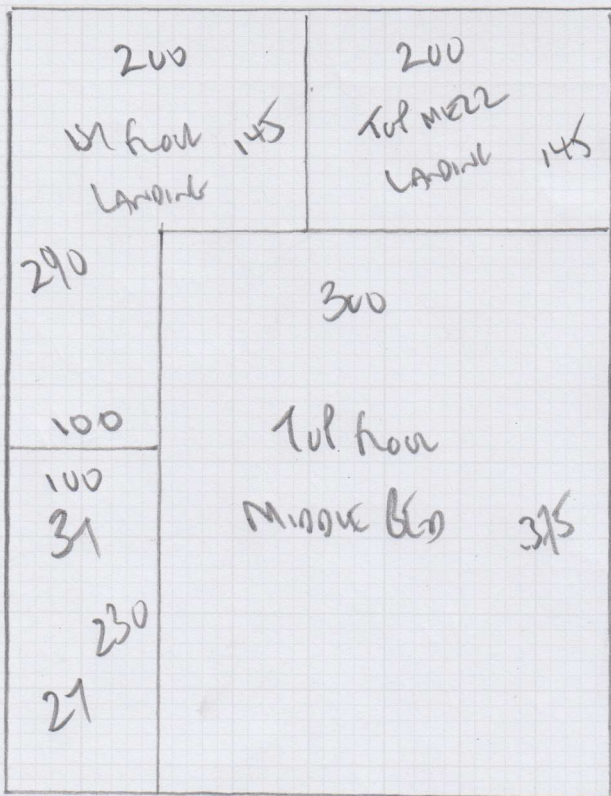 200
1st floor 145
LANDING
290
100
200
TOP MEZZ
LANDING 145
300
TOP floor
MIDDLE BED 375
100
31
230
21